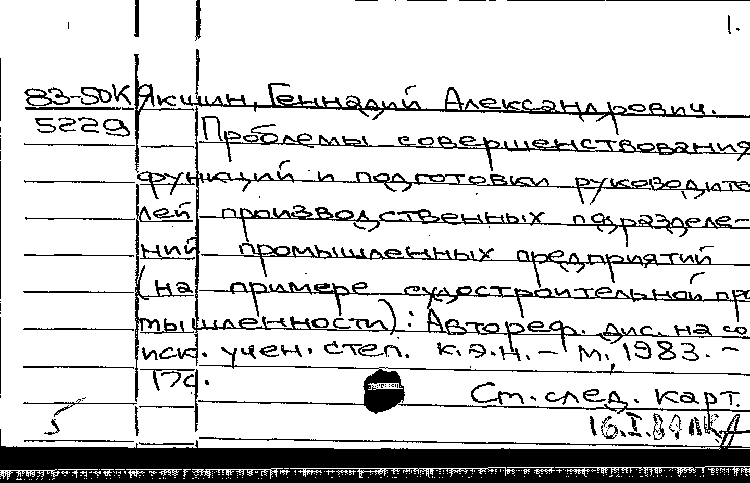 1.
83-50К Якшин, Геннадий Александрович.
5229 Проблемы совершенствования
функций и подготовки руководите
лей производственных подразделе-
ний промышленных предприятий
(на примере судостроительной про
мышленности): Автореф. дис. на со
иск. учен. степ. к.э.н. - М., 1983. -
17с.
См. след. карт.
5